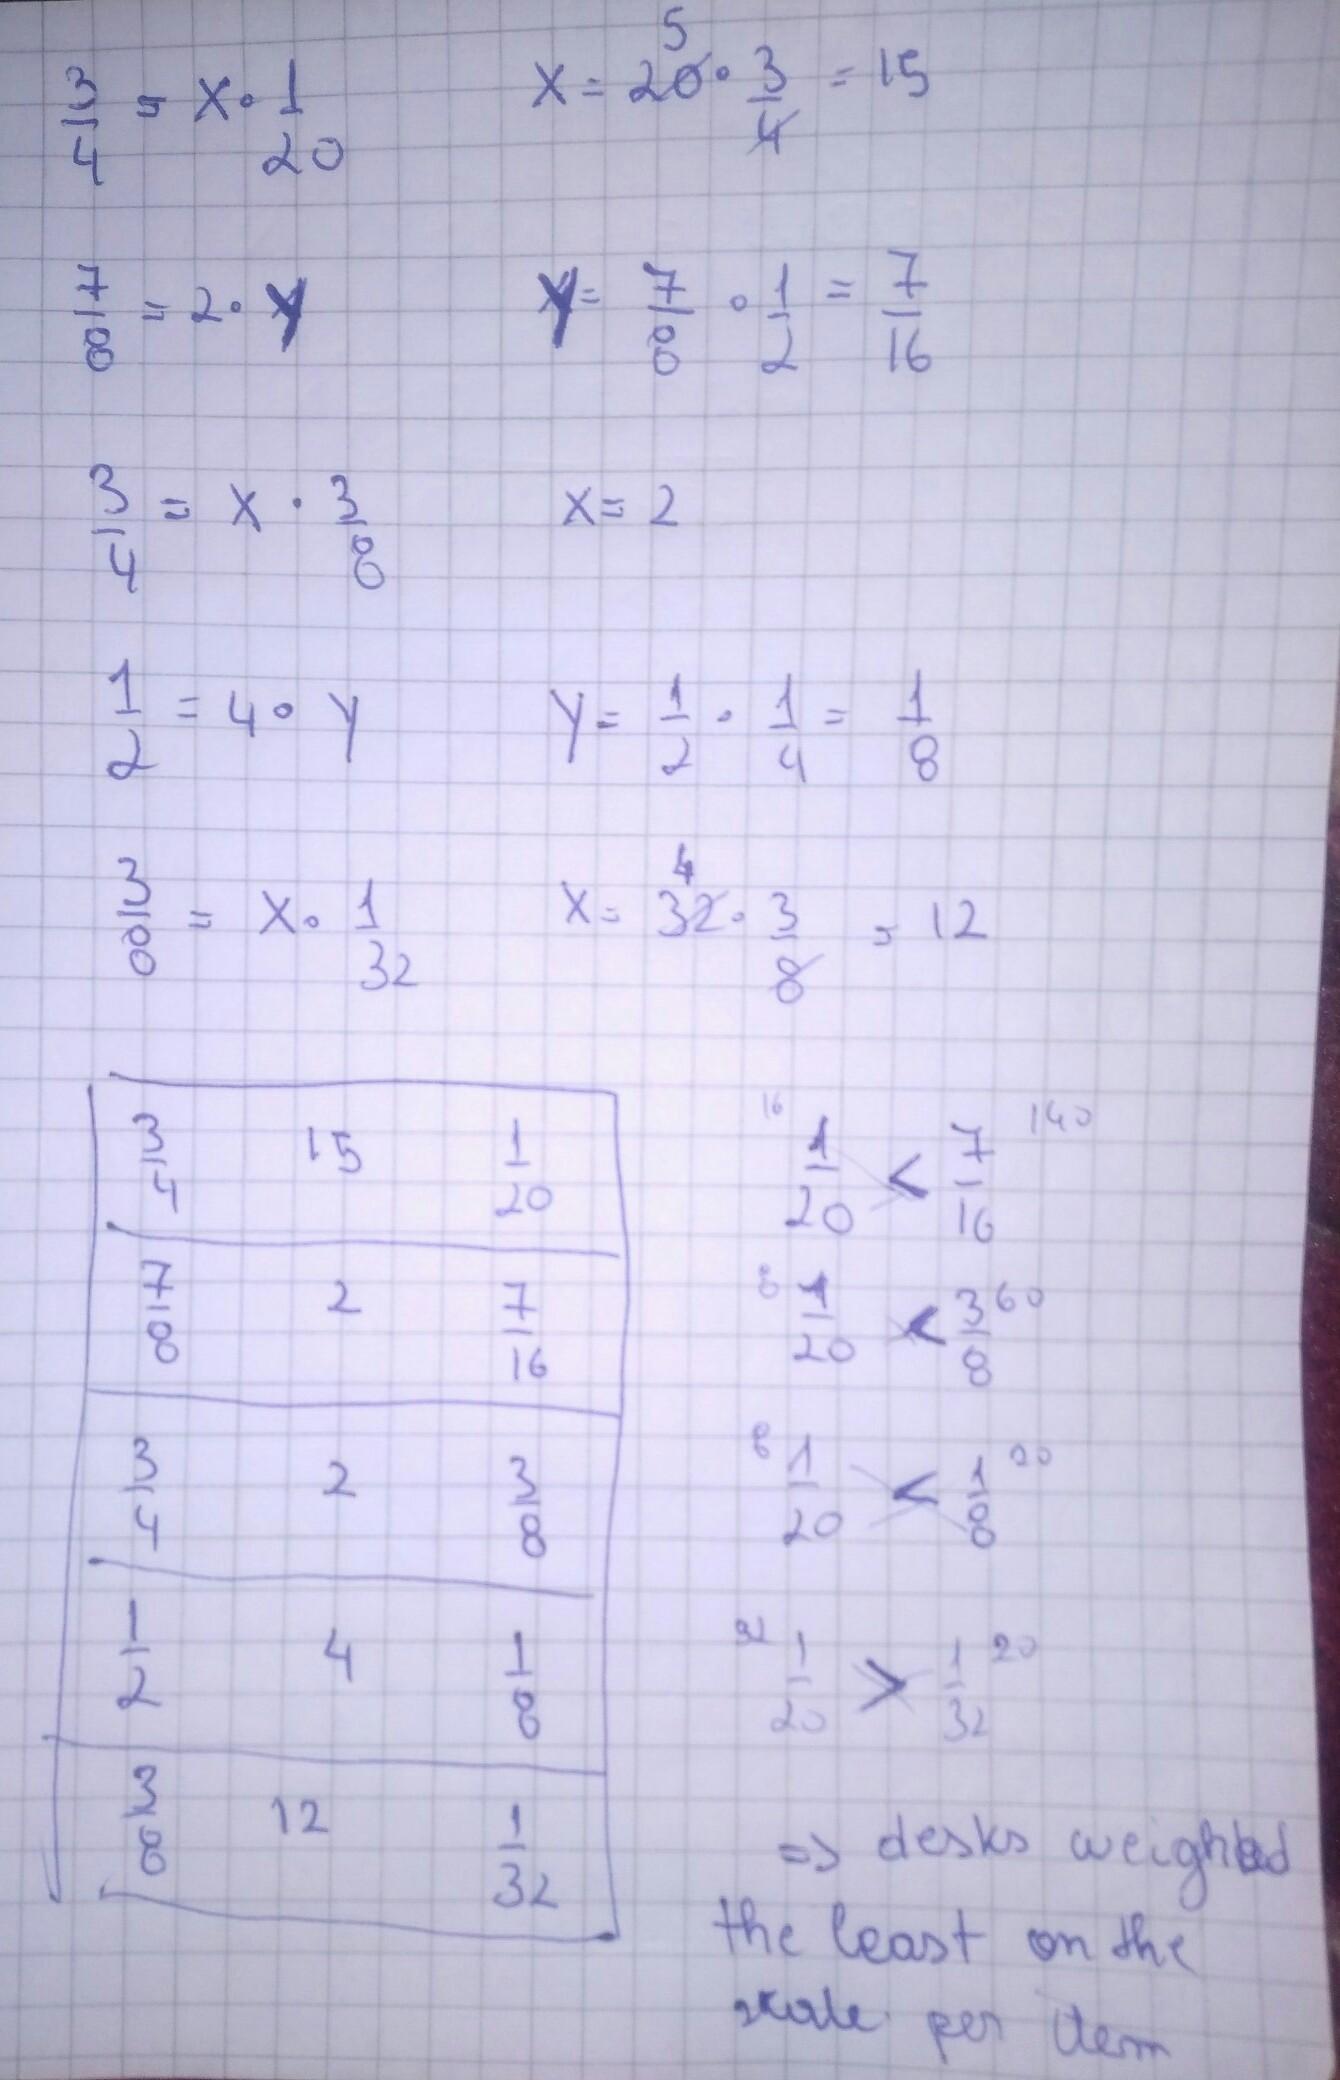 3/4 = x · 1/20    x = 20 · 3/4 = 15
5
7/8 = 2 · y    y = 7/8 · 1/2 = 7/16
3/4 = x · 3/8    x = 2
1/2 = 4 · y    y = 1/2 · 1/4 = 1/8
3/8 = x · 1/32    x = 32 · 3/8 = 12
4
3/4 15 1/20
7/8 2 7/16
3/4 2 3/8
1/2 4 1/8
3/8 12 1/32
16 1/20 < 7/16 140
8 1/20 < 3/8 60
8 1/20 < 1/8 20
1/20 > 1/32 20
=> desks weighted
the least on the
scale per item